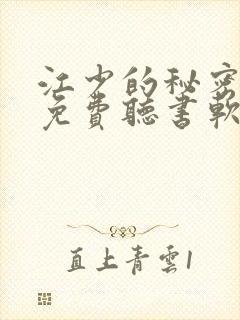 江少的秘密
免費聽書軟
直上青雲1